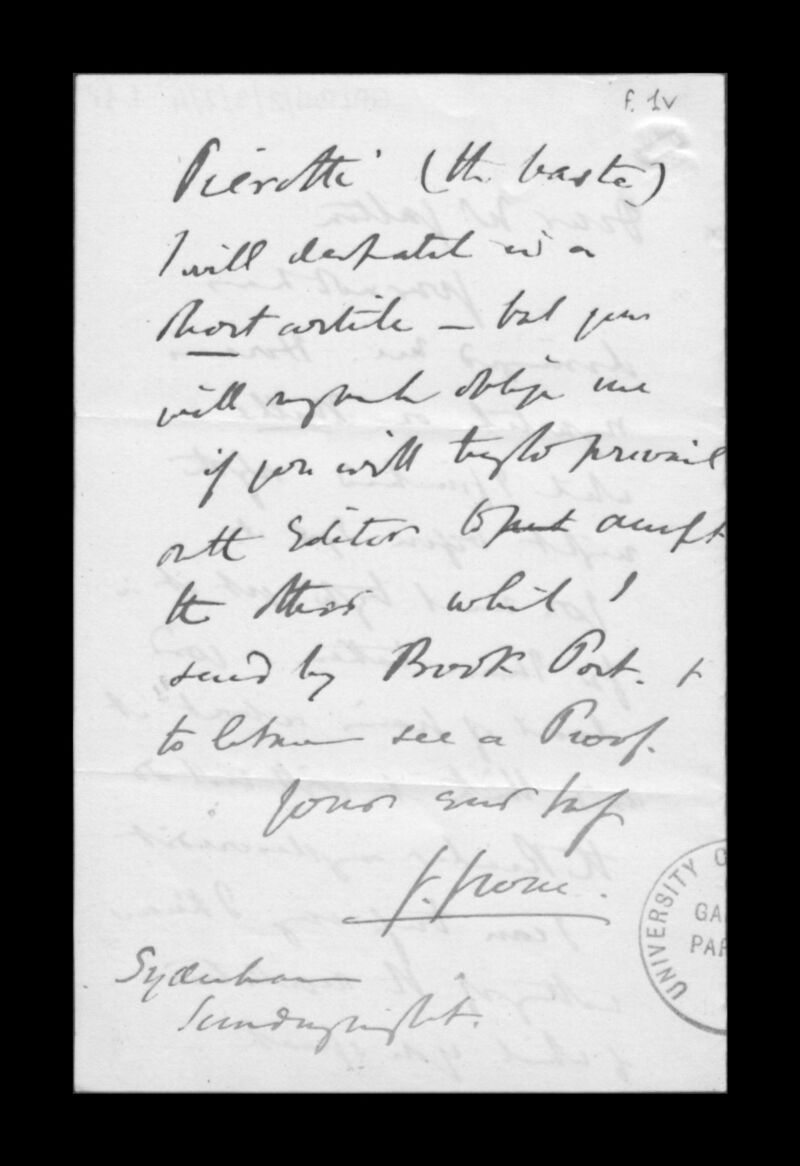 f. 1v
Pierotti (the
I will despatch in a
short article — but you
will oblige me
if you will try to prevail
on the Editor to put accept
the other which I
send by Book Post. &
to let me see a Proof.
yours
G. Grove.
Sydenham
Sunday night.
UNIVERSITY
GA
PAP